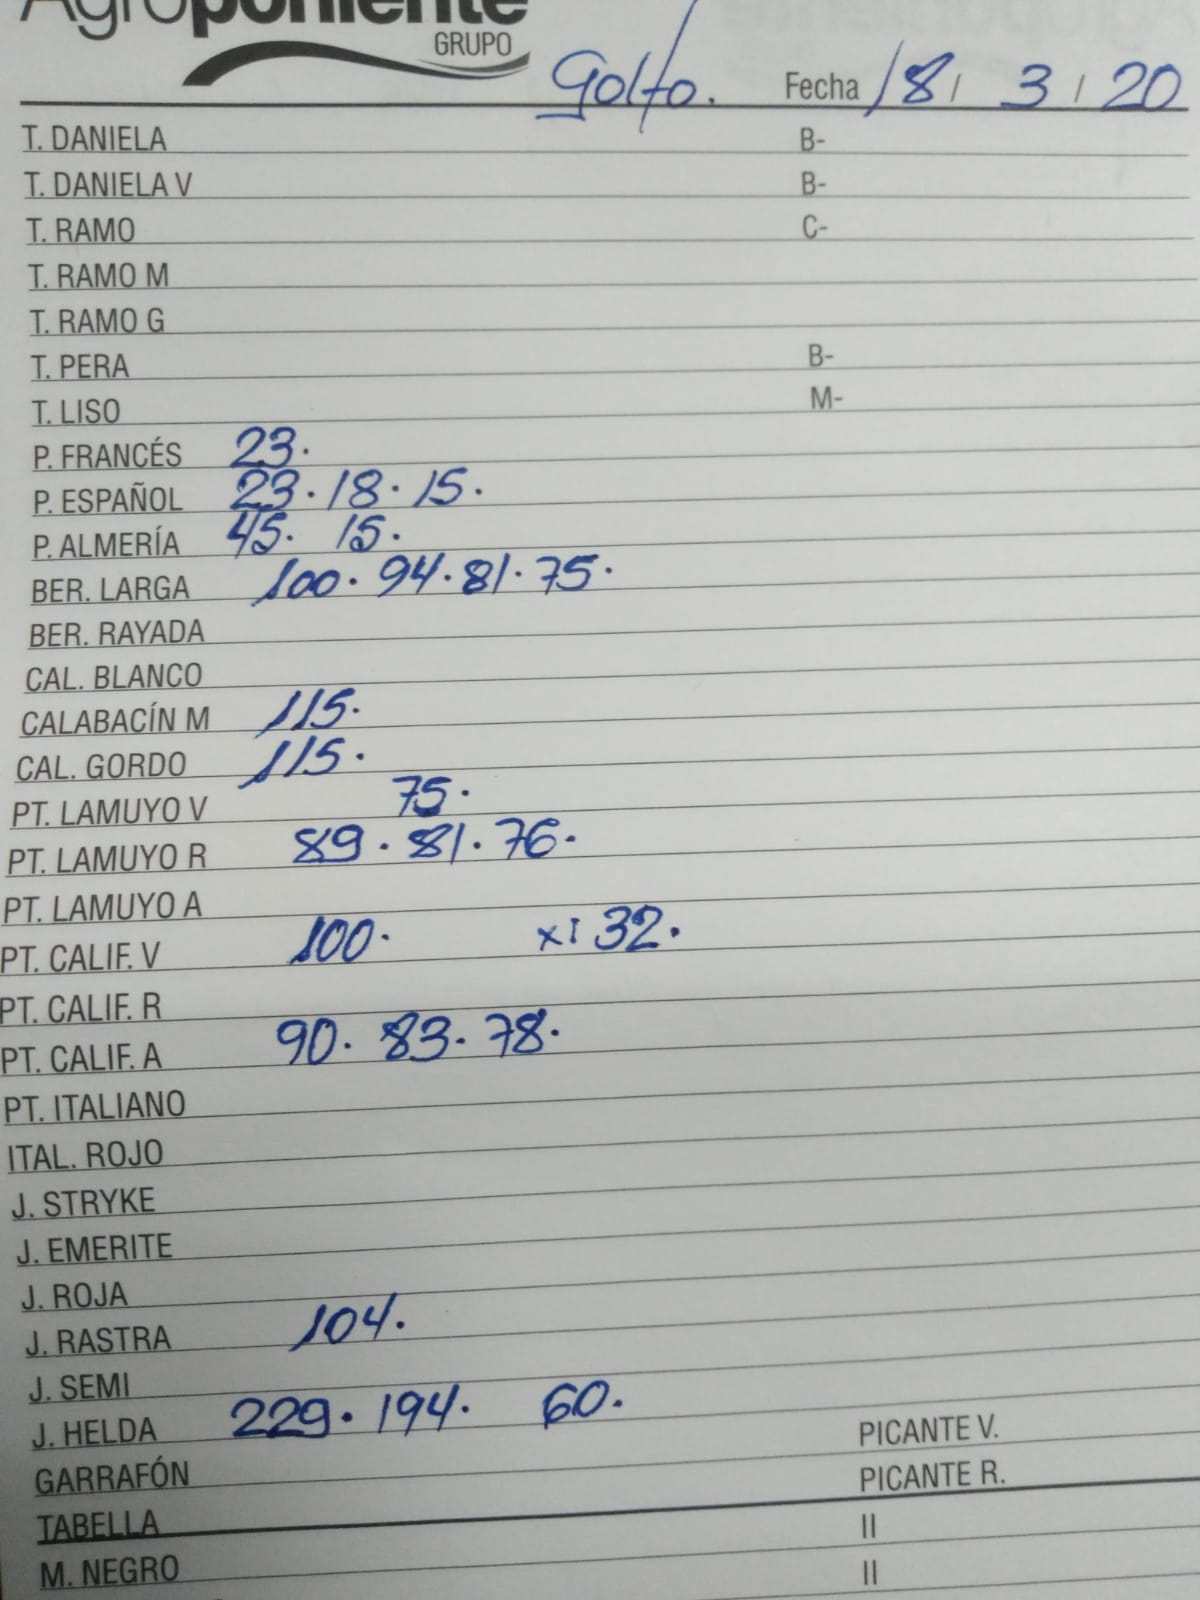 Agroponiente
GRUPO
Golfo. Fecha 18 / 3 / 20
T. DANIELA B-
T. DANIELA V B-
T. RAMO C-
T. RAMO M
T. RAMO G
T. PERA B-
T. LISO M-
P. FRANCÉS 23.
P. ESPAÑOL 23. 18. 15.
P. ALMERÍA 45. 15.
BER. LARGA 100. 94. 81. 75.
BER. RAYADA
CAL. BLANCO
CALABACÍN M 115.
CAL. GORDO 115.
PT. LAMUYO V 75.
PT. LAMUYO R 89. 81. 76.
PT. LAMUYO A
PT. CALIF. V 100. 32.
PT. CALIF. R
PT. CALIF. A 90. 83. 78.
PT. ITALIANO
ITAL. ROJO
J. STRYKE
J. EMERITE
J. ROJA
J. RASTRA 104.
J. SEMI
J. HELDA 229. 194. 60. PICANTE V.
GARRAFÓN PICANTE R.
TABELLA II
M. NEGRO II